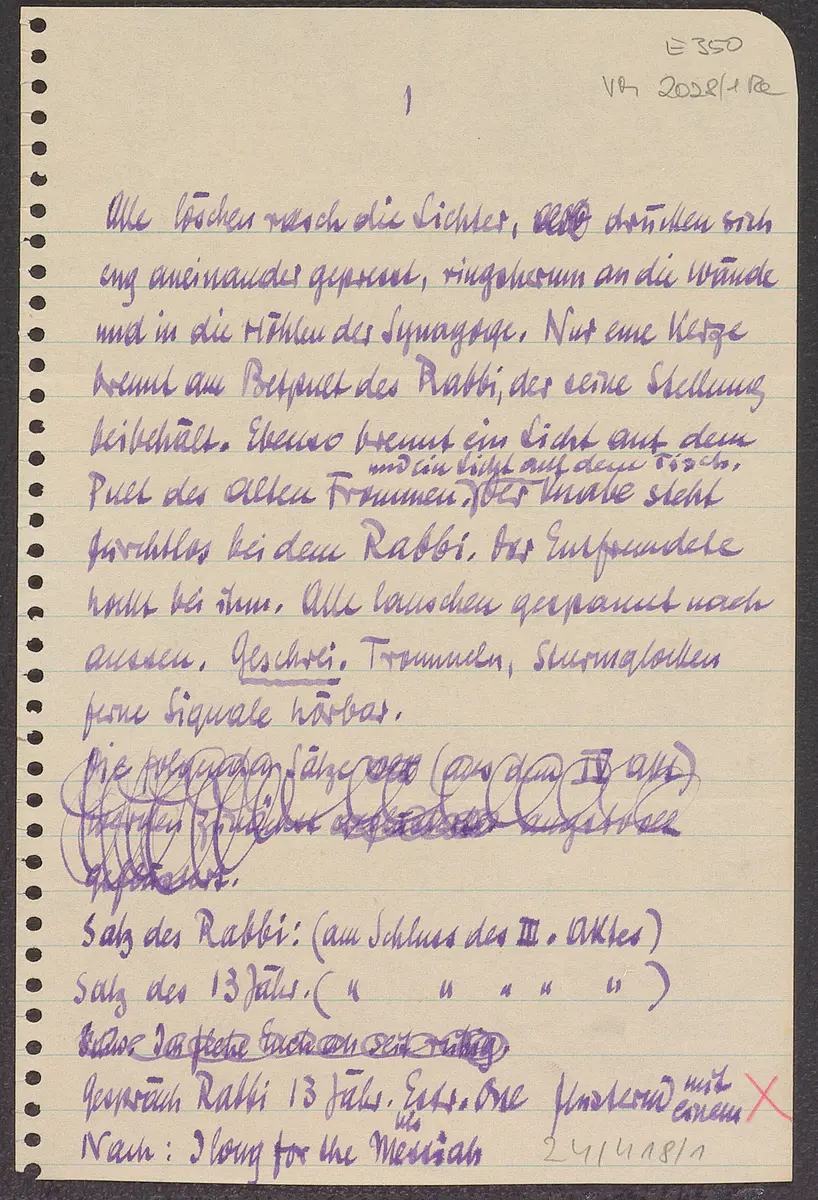 E 350
VR 2028/1 Re
1
Alle löschen rasch die Lichter, drücken sich
eng aneinander gepresst, ringsherum an die Wände
und in die Höhlen der Synagoge. Nur eine Kerze
brennt am Betpult des Rabbi, der seine Stellung
beibehält. Ebenso brennt ein Licht auf dem
und ein Licht auf dem Tisch.
Pult des alten Frommen. Der Knabe steht
furchtlos bei dem Rabbi. Der Entfremdete
hockt bei ihm. Alle lauschen gespannt nach
aussen. Geschrei. Trommeln, Sturmglocken
ferne Signale hörbar.
Die folgenden Sätze (aus dem IV Akt)
werden zunächst angstvoll
geflüstert.
Satz des Rabbi: (am Schluss des III. Aktes)
Satz des 13 Jähr. ( " " " " " )
Ich flehe Euch an seit ruhig.
Gespräch Rabbi 13 Jähr. Entr. flüsternd mit
einem X
Nach: I long for the Messiah
24/418/1